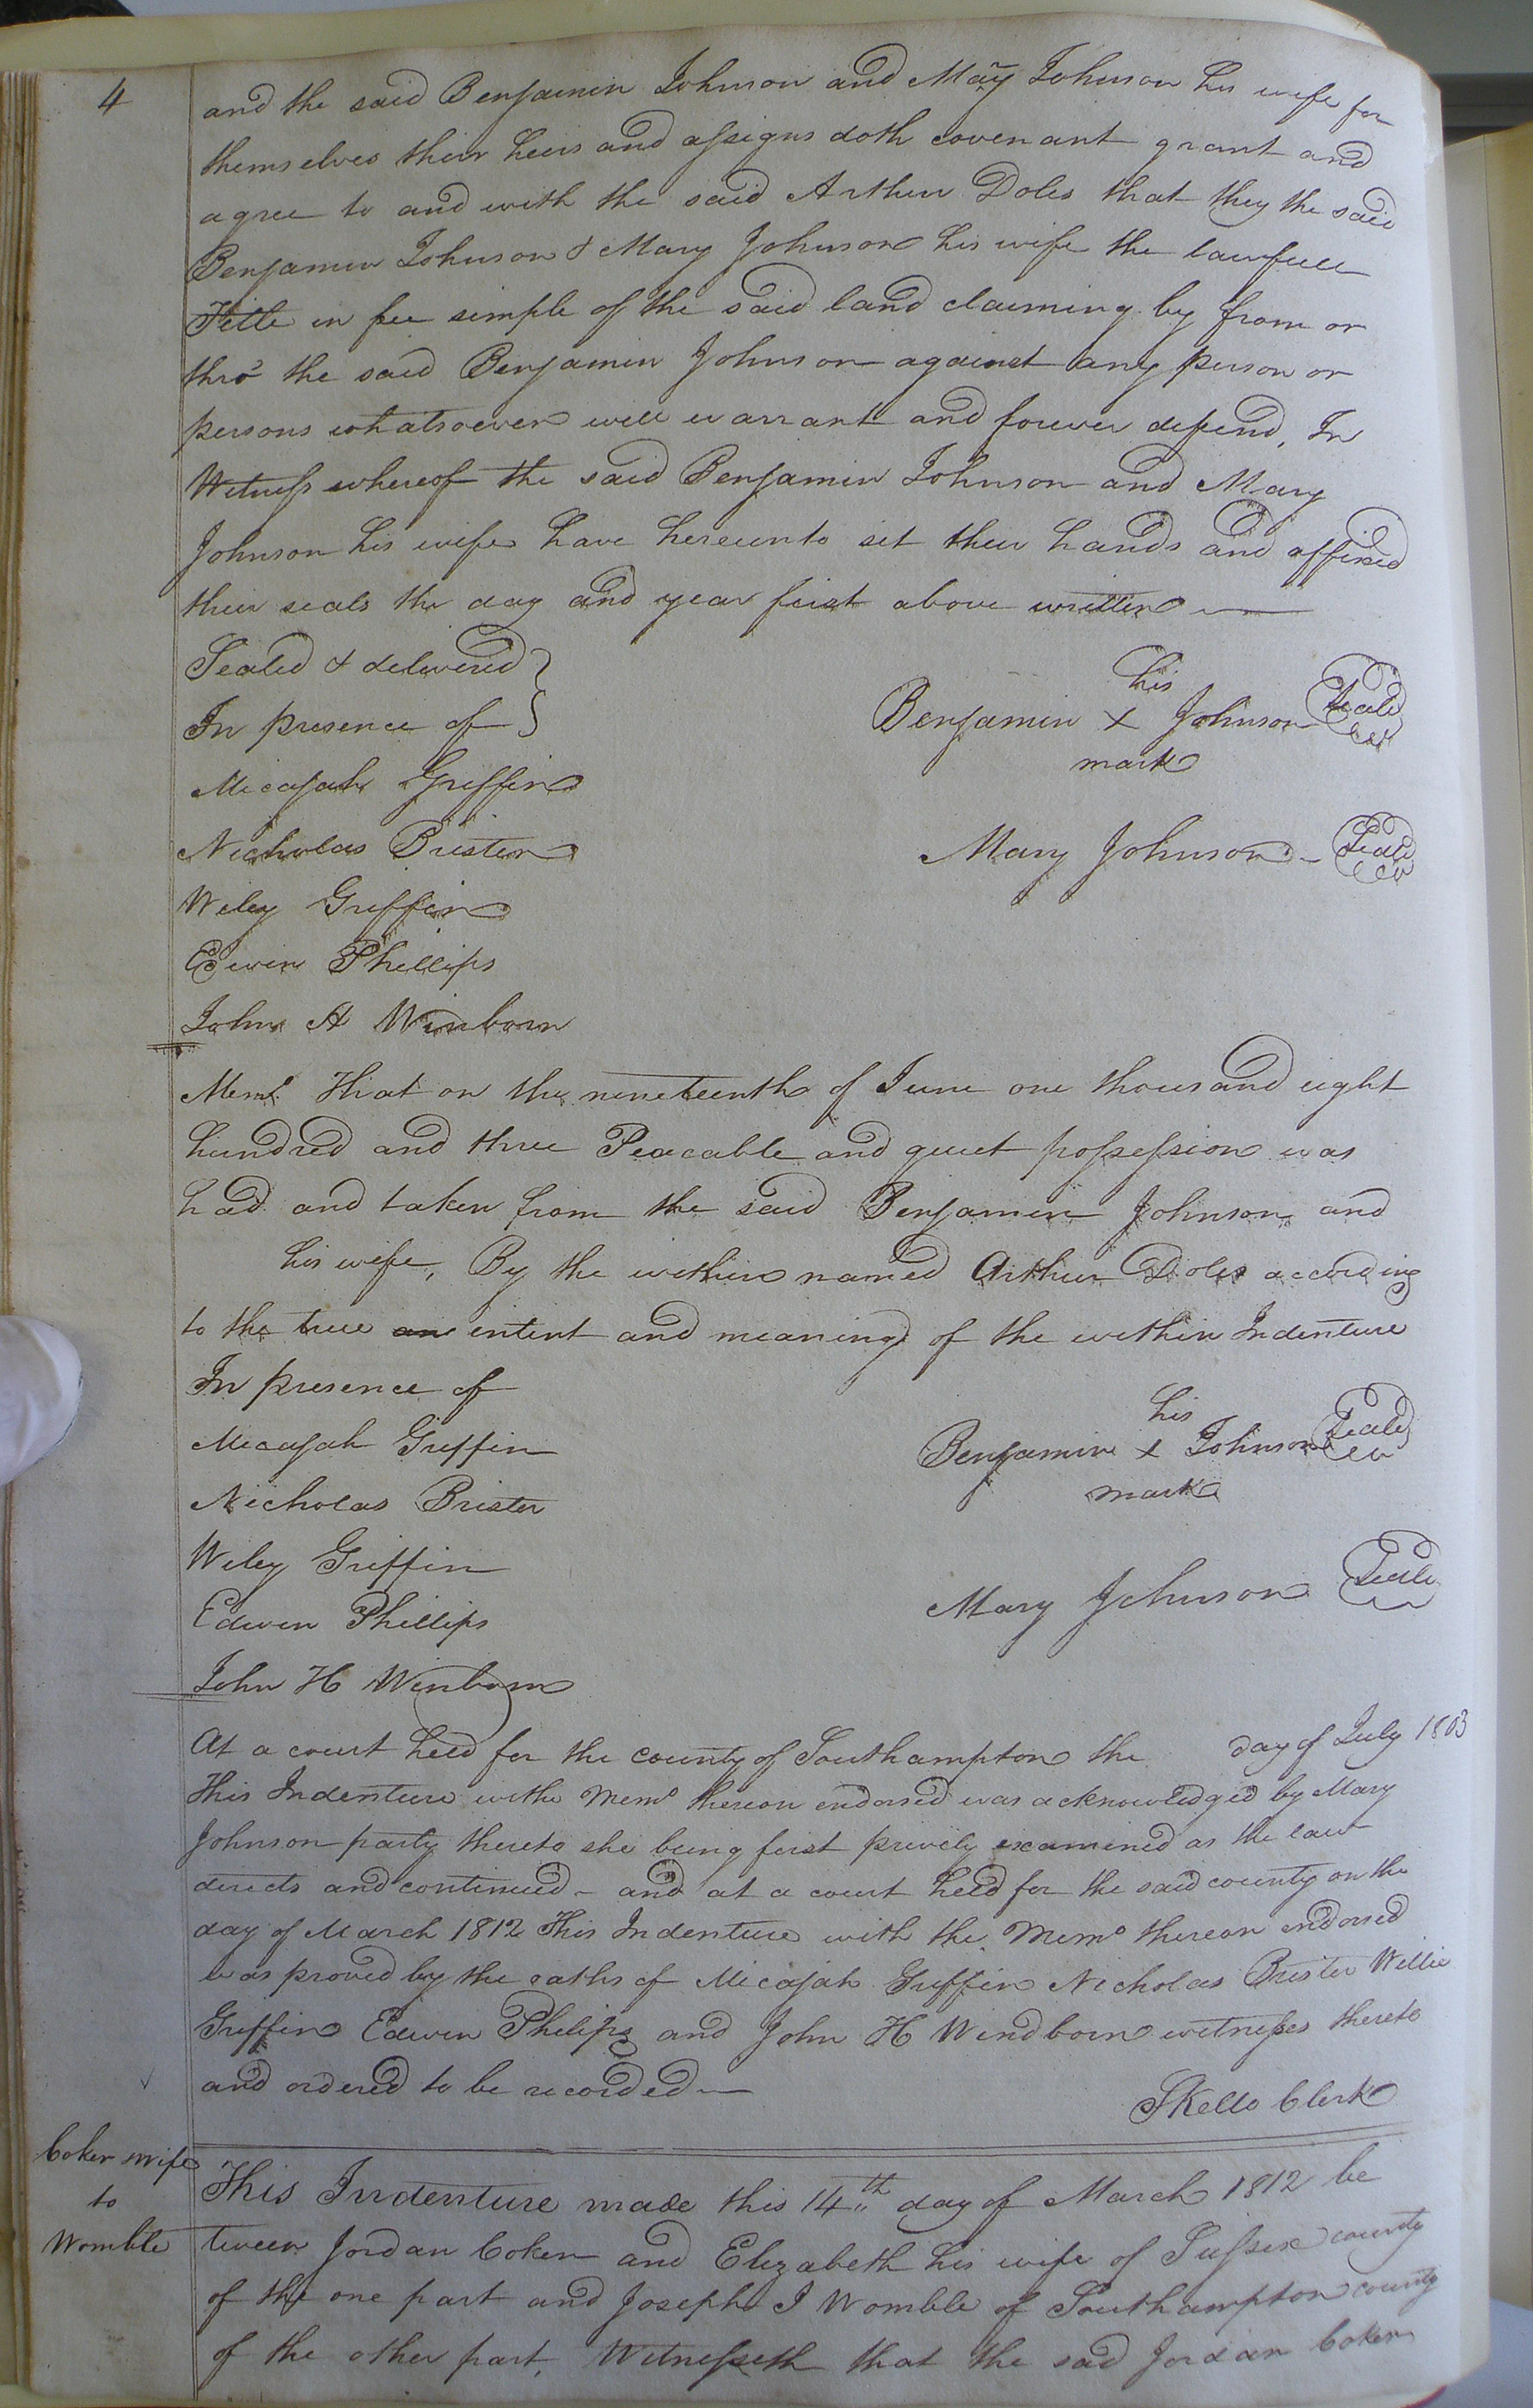 4
and the said Benjamin Johnson and Mary Johnson his wife for
themselves their heirs and assigns doth covenant grant and
agree to and with the said Arthur Doles that they the said
Benjamin Johnson & Mary Johnson his wife the lawfull
Title in fee simple of the said land claiming by from or
thro' the said Benjamin Johnson against any person or
persons whatsoever will warrant and forever defend, In
Witness whereof the said Benjamin Johnson and Mary
Johnson his wife have hereunto set their hands and affixed
their seals the day and year first above written
Sealed & delivered
In presence of
his
Benjamin x Johnson Seal
mark
Micajah Griffin
Nicholas Brister
Mary Johnson - Seal
Wiley Griffin
Edwin Phillips
John H Winborn
Memo. That on the nineteenth of June one thousand eight
hundred and three Peacable and quiet possession was
had and taken from the said Benjamin Johnson and
his wife, By the within named Arthur Doles according
to the true an intent and meaning of the within Indenture
In presence of
his
Benjamin x Johnson Seal
mark
Micajah Griffin
Nicholas Brister
Wiley Griffin
Mary Johnson Seal
Edwin Phillips
John H Winborn
At a court held for the county of Southampton the day of July 1803
This Indenture withe Memo thereon endorsed was acknowledged by Mary
Johnson party thereto she being first privily examined as the law
directs and continued - and at a court held for the said county on the
day of March 1812 This Indenture with the Memo thereon endorsed
was proved by the oaths of Micajah Griffin Nicholas Brister Willie
Griffin Edwin Philips and John H Windborn witnesses thereto
and ordered to be recorded
SKello Clerk
Coker & wife
to
Womble
This Indenture made this 14th day of March 1812 be
tween Jordan Coker and Elizabeth his wife of Sussex county
of the one part and Joseph J Womble of Southampton county
of the other part, Witnesseth that the sad Jordan Coker